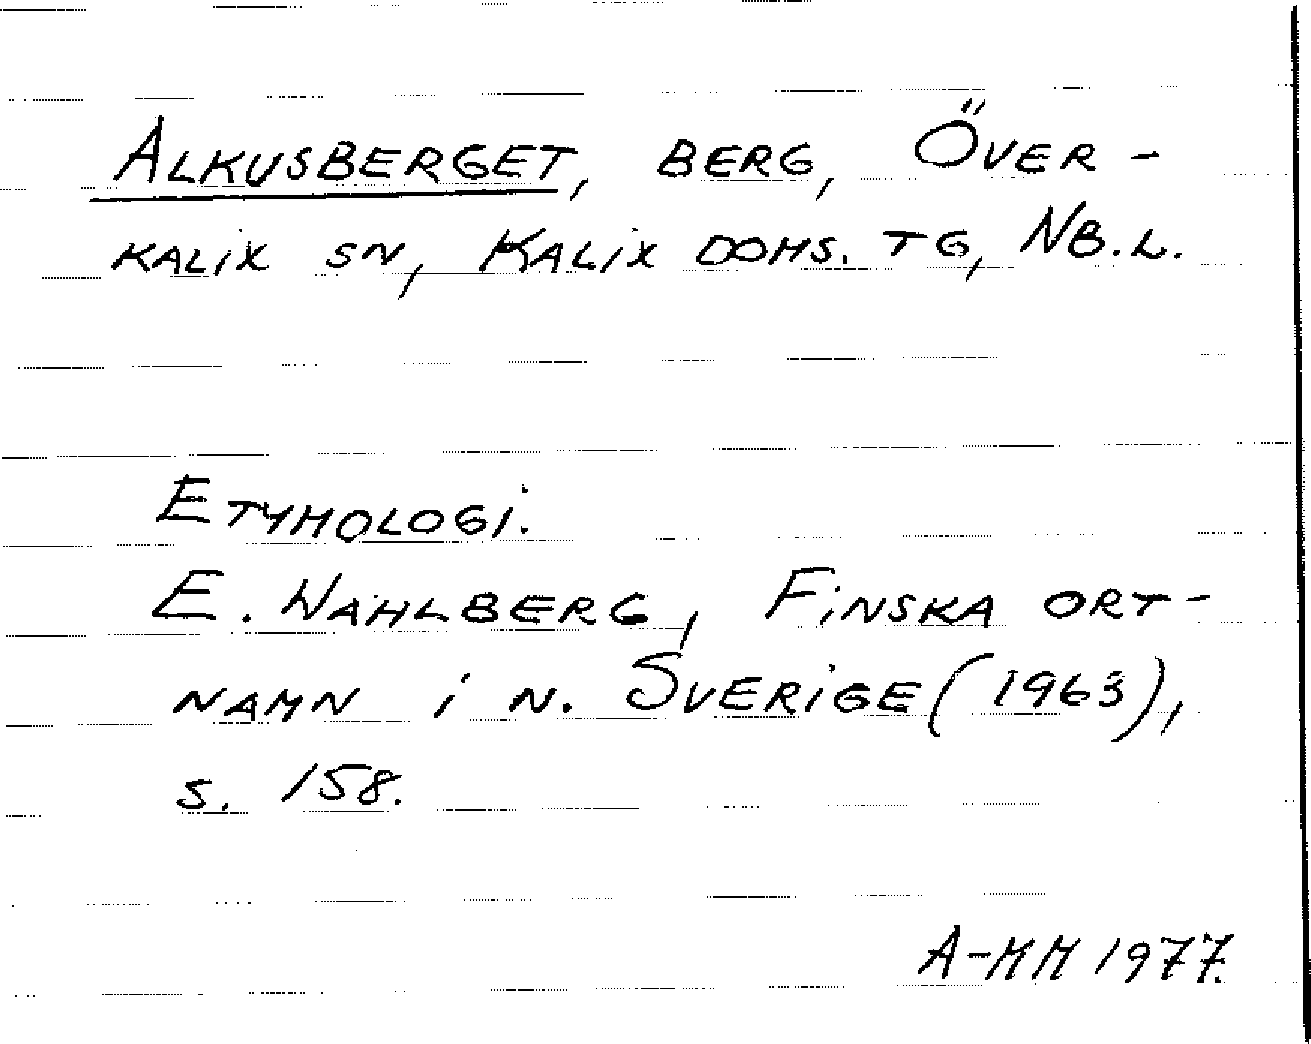 ALKUSBERGET, BERG, ÖVER-
KALIX SN, KALIX DOMS. TG, NB.L.
ETYMOLOGI.
E. WAHLBERG, FINSKA ORT-
NAMN I N. SVERIGE (1963),
S. 158.
A-MM 1977.